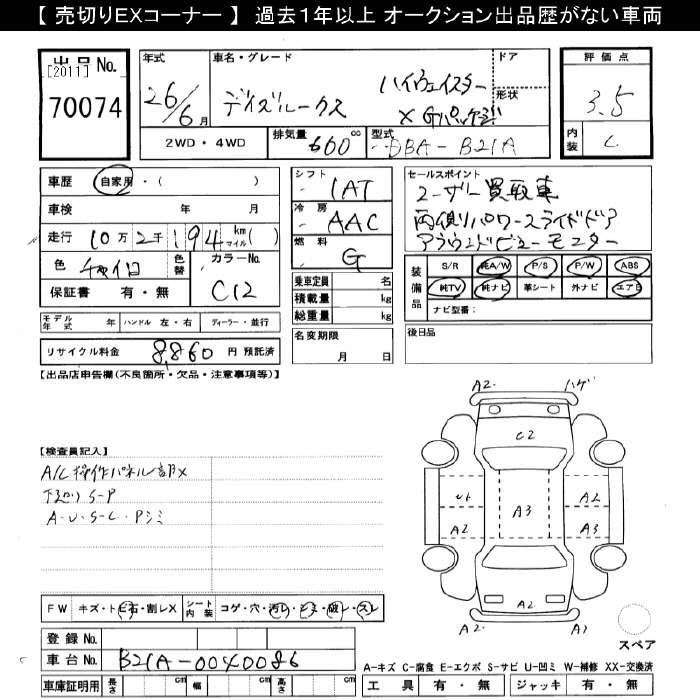 【 売切りEXコーナー 】 過去１年以上 オークション出品歴がない車両
出品 No.
[2011]
70074
年式
26/6月
車名・グレード
デイズルークス
ハイウェイスター
X Gパッケージ
ドア
形状
2WD・4WD
排気量
660cc
型式
DBA-B21A
評価点
3.5
内装
C
車歴 自家用・( )
車検 年 月
走行 10万2千194km(マイル)( )
色 チャイロ 色替 カラーNo. C12
保証書 有・無
シフト
IAT
冷房
AAC
燃料
G
乗車定員 名
積載量 kg
総重量 kg
名変期限
月 日
セールスポイント
ユーザー買取車
両側パワースライドドア
アラウンドビューモニター
装備品
S/R 純A/W P/S P/W ABS
純TV 純ナビ 革シート 外ナビ エアB
ナビ型番:
後日品
モデル年式 年 ハンドル 左・右 ディーラー・並行
リサイクル料金 8,860 円 預託済
【出品店申告欄(不良箇所・欠品・注意事項等)】
【検査員記入】
A/C操作パネル部X
下廻り S-P
A・U・S-C・Pシミ
FW キズ・トビ石・割レX シート内装 コゲ・穴・汚レ・シミ・破レ・スレ
登録 No.
車台 No. B21A-0040086
車庫証明用 長さ cm 幅 cm 高さ cm
A2 ハゲ
C2
U1 A2
A3
A2 A3
A2
A2 A1
スペア
A-キズ C-腐食 E-エクボ S-サビ U-凹ミ W-補修 XX-交換済
工具 有・無 ジャッキ 有・無